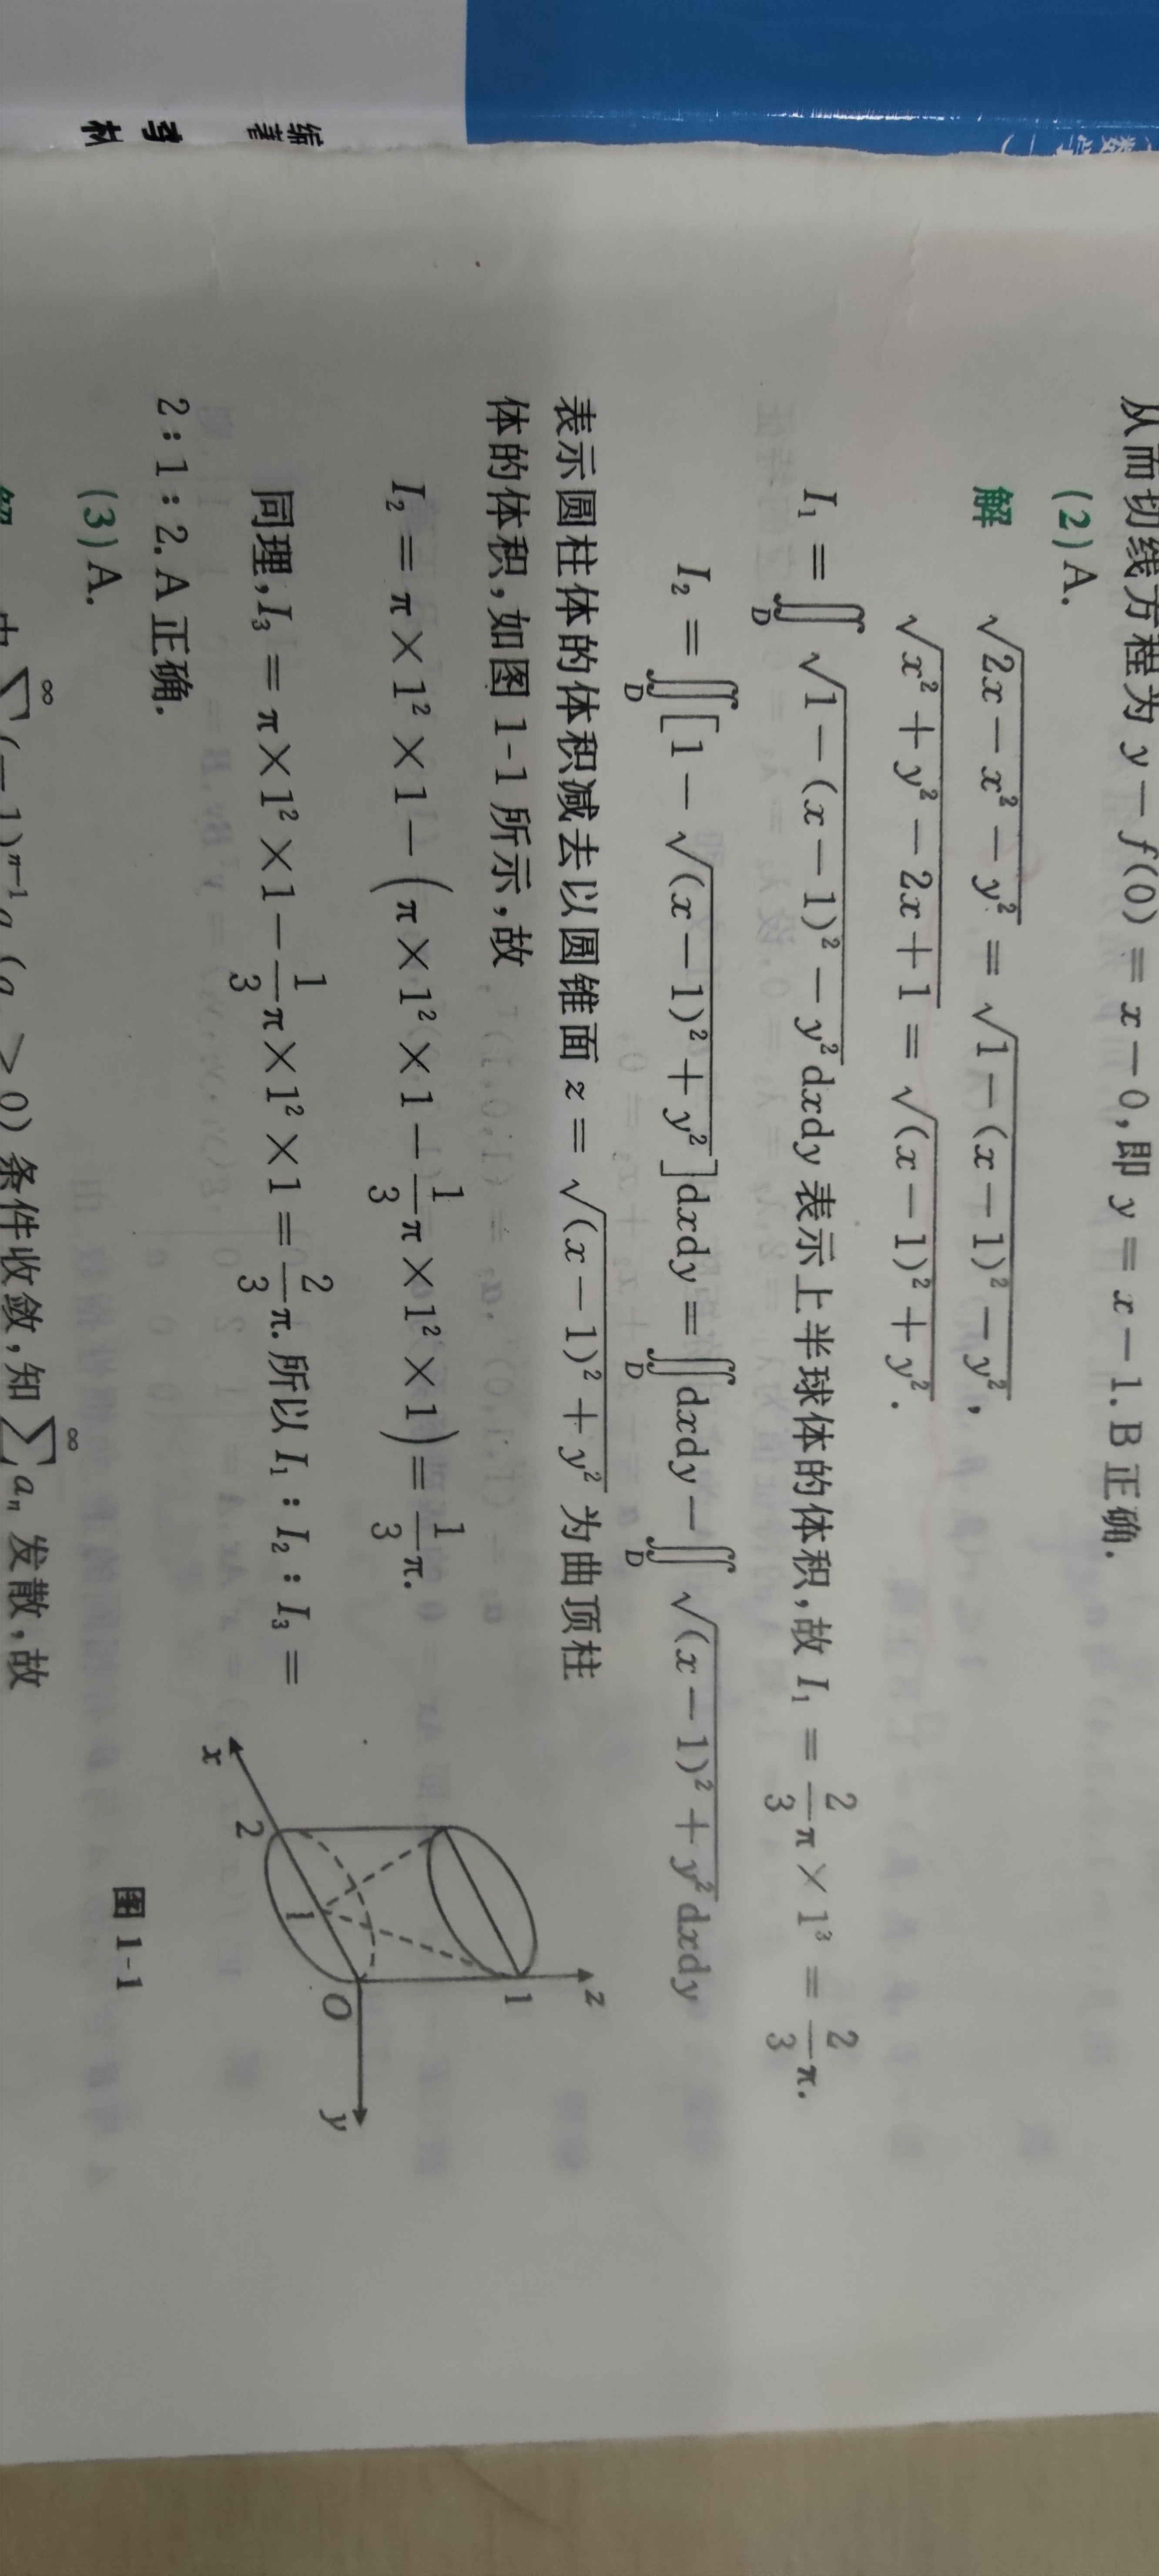 数学一)
编著
材
从而切线方程为 y－f(0)＝x－0,即 y＝x－1. B 正确.
(2) A.
解 √(2x－x²－y²)＝√(1－(x－1)²－y²),
√(x²＋y²－2x＋1)＝√((x－1)²＋y²).
I₁＝∬_D √(1－(x－1)²－y²)dxdy 表示上半球体的体积,故 I₁＝2/3 π×1³＝2/3 π.
I₂＝∬_D [1－√((x－1)²＋y²)]dxdy＝∬_D dxdy－∬_D √((x－1)²＋y²)dxdy
表示圆柱体的体积减去以圆锥面 z＝√((x－1)²＋y²) 为曲顶柱
体的体积,如图 1-1 所示,故
I₂＝π×1²×1－(π×1²×1－1/3 π×1²×1)＝1/3 π.
同理,I₃＝π×1²×1－1/3 π×1²×1＝2/3 π. 所以 I₁∶I₂∶I₃＝
2∶1∶2. A 正确.
z
1
O
y
1
2
x
图 1-1
(3) A.
解 由 ∑^∞ (－1)ⁿ⁻¹a (a ＞0) 条件收敛,知 ∑^∞ aₙ 发散,故